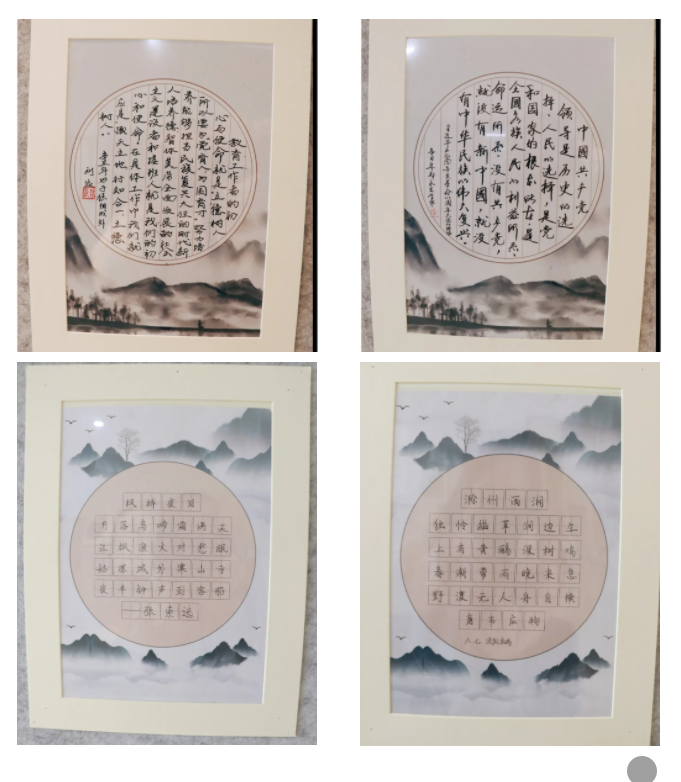 教育工作者的初
心与使命就是立德树人
所以要为党育人为国育才，努力培
养能够担当民族复兴大任的时代新
人培养德智体美劳全面发展的社会
主义建设者和接班人就是我们的初
心和使命，在具体工作中我们就
应是顶天立地行知合一立德
树人！
中國共产党
领导是历史的选
择、人民的选择，是党
和国家的根本所在是
全国各族人民的利益所系、
命运所系。没有共产党，
就没有新中國，就没
有中华民族的伟大复兴。
枫桥夜泊
月落乌啼霜满天
江枫渔火对愁眠
姑苏城外寒山寺
夜半钟声到客船
——张
滁州西涧
独怜幽草涧边生
上有黄鹂深树鸣
春潮带雨晚来急
野渡无人舟自横
唐韦应物